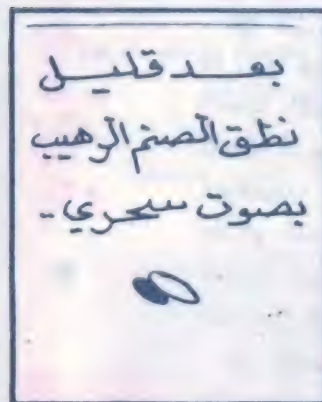 بعد قليل
نطق الصنم الرهيب
بصوت سحري..